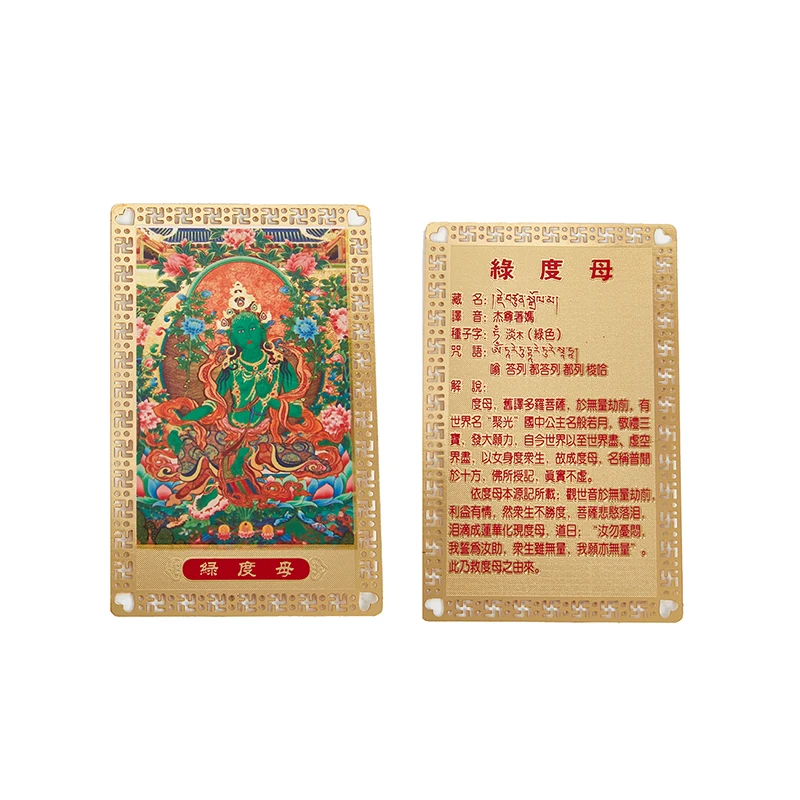 綠度母
綠度母
藏 名：རྗེ་བཙུན་སྒྲོལ་མ།
譯 音：杰尊著媽
種子字： 淡木（綠色）
咒 語：
嗡 答列 都答列 都列 梭哈
解 說：
度母，舊譯多羅菩薩，於無量劫前，有
世界名“聚光”國中公主名般若月，敬禮三
寶，發大願力，自今世界以至世界盡、虛空
界盡，以女身度衆生，故成度母，名稱普聞
於十方，佛所授記，眞實不虛。
依度母本源記所載；觀世音於無量劫前，
利益有情，然衆生不勝度，菩薩悲愍落泪，
泪滴成蓮華化現度母，道曰：“汝勿憂悶，
我誓爲汝助，衆生雖無量，我願亦無量”。
此乃救度母之由來。